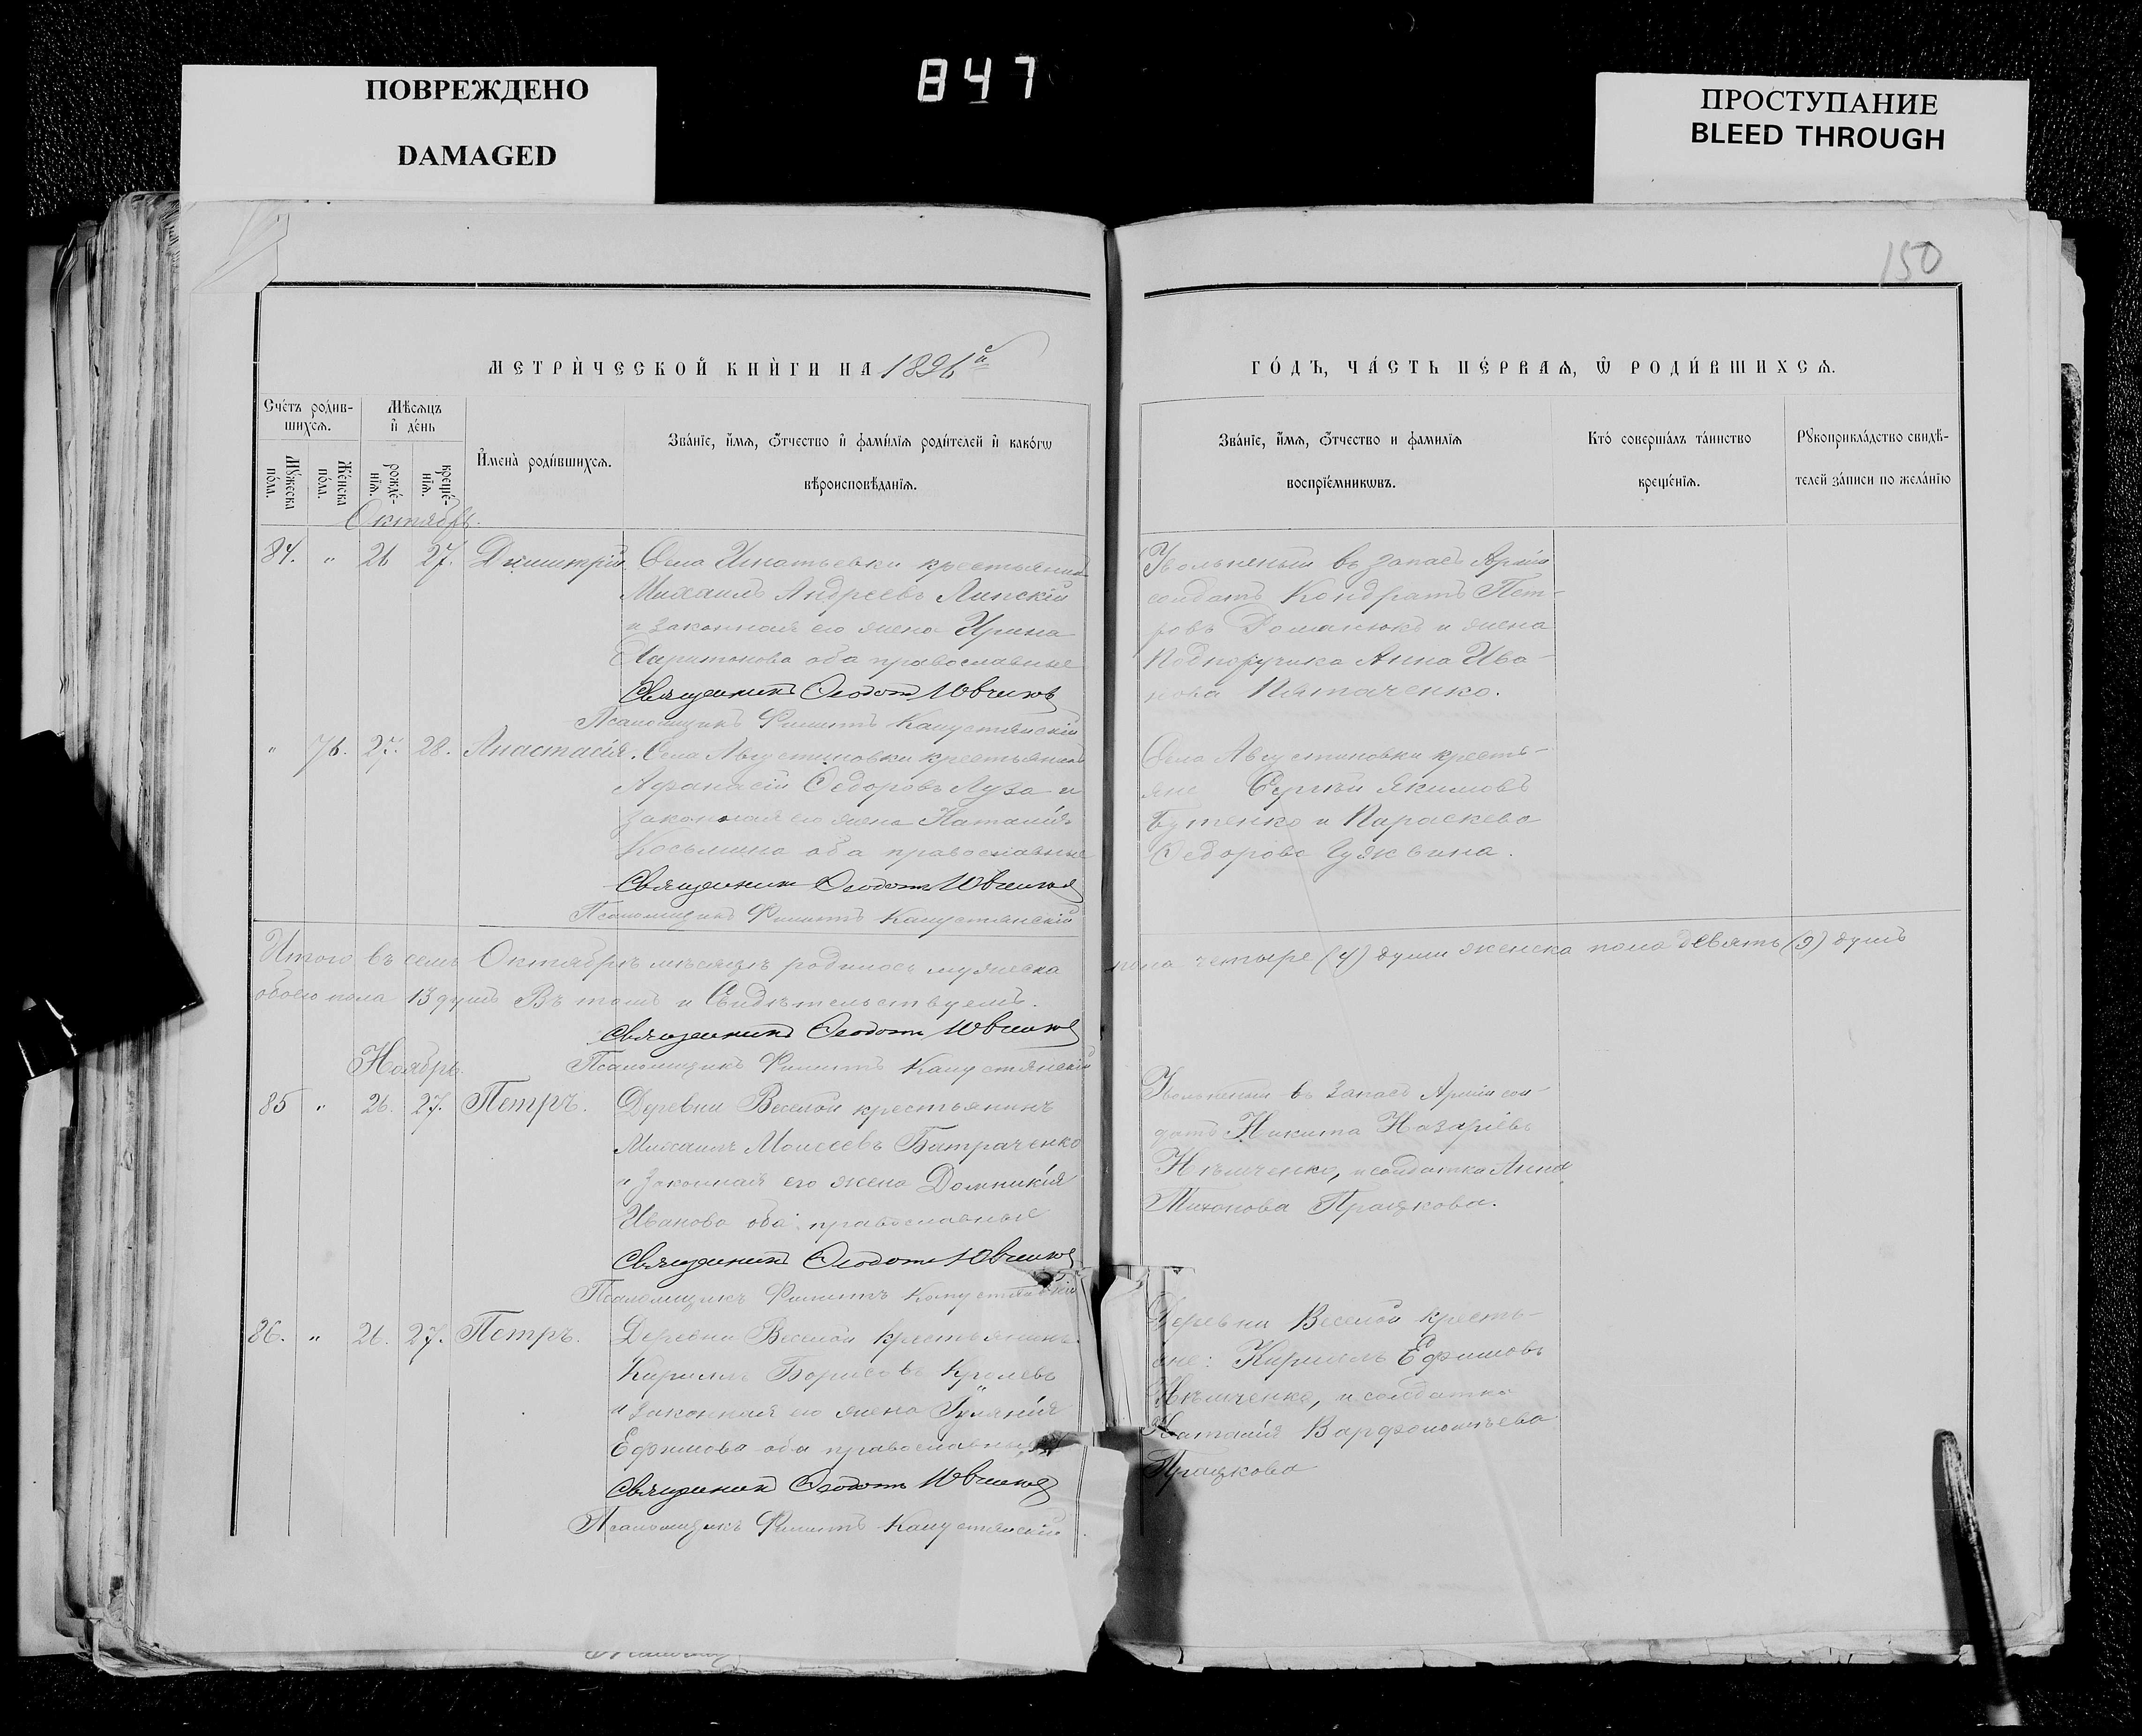 847
ПОВРЕЖДЕНО
DAMAGED
ПРОСТУПАНИЕ
BLEED THROUGH
150
МЕТРИ́ЧЕСКОЙ КНИ́ГИ НА 1896й
ГО́ДЪ, ЧА́СТЬ ПЕ́РВАѦ, Ѽ РОДИ́ВШИХСѦ.
Сче́тъ роди́в-
шихсѧ.
Мꙋ́жеска по́ла.
Же́нска по́ла.
Мѣ́сѧцъ
и҆ де́нь
рожде́-
нїѧ.
креще́-
нїѧ.
И҆мена̀ роди́вшихсѧ.
Зва́нїе, и҆́мѧ, ѻ҆́тчество и҆ фами́лїѧ роди́телей и҆ како́гѡ
вѣроисповѣ́данїѧ.
Зва́нїе, и҆́мѧ, ѻ҆́тчество и фамилїѧ
воспрїе́мникѡвъ.
Кто́ соверша́лъ та́инство
креще́нїѧ.
Рꙋкоприкла́дство свидѣ́-
телей за́писи по жела́нїю
Октябрь.
84. " 26 27. Димитрій. Села Игнатьевки крестьянинъ
Михаилъ Андреевъ Липскій
и законная его жена Ирина
Харитонова оба православные
Священникъ Ѳеодотъ
Псаломщикъ Филиппъ Капустянскій
Уволенный въ запасъ Арміи
солдатъ Кондратъ Пет-
ровъ Романюкъ и жена
Подпоручика Анна Ива-
нова
" 76. 27. 28. Анастасія. Села Августиновки крестьянинъ
Афанасій Ѳедоровъ Луза и
законная его жена Наталія
Косьмина оба православные
Священникъ Ѳеодотъ
Псаломщикъ Филиппъ Капустянскій
Села Августиновки кресть-
яне Сергѣй Якимовъ
Бутенко и Параскева
Ѳедорова
Итого въ семъ Октябрѣ мѣсяцѣ родилось мужеска пола четыре (4) души женска пола девять (9) душъ
обоего пола 13 душъ Въ томъ и Свидѣтельствуемъ.
Священникъ Ѳеодотъ
Псаломщикъ Филиппъ Капустянскій
Ноябрь.
85 " 26. 27. Петръ. Деревни Веселой крестьянинъ
Михаилъ Моисеевъ Батраченко
и законная его жена Домникія
Иванова оба православные
Священникъ Ѳеодотъ
Псаломщикъ Филиппъ Капустянскій
Уволенный въ запасъ Арміи сол-
датъ Никита Назаріевъ
Нѣмченко, и солдатка Анна
Тихонова
86. " 26. 27. Петръ. Деревни Веселой крестьянинъ
Кириллъ Борисовъ
и законная его жена Іуліанія
Ефимова оба православные
Священникъ Ѳеодотъ
Псаломщикъ Филиппъ Капустянскій
Деревни Веселой кресть-
яне: Кириллъ Ефимовъ
Нѣмченко, и солдатка
Наталія Варфоломѣева